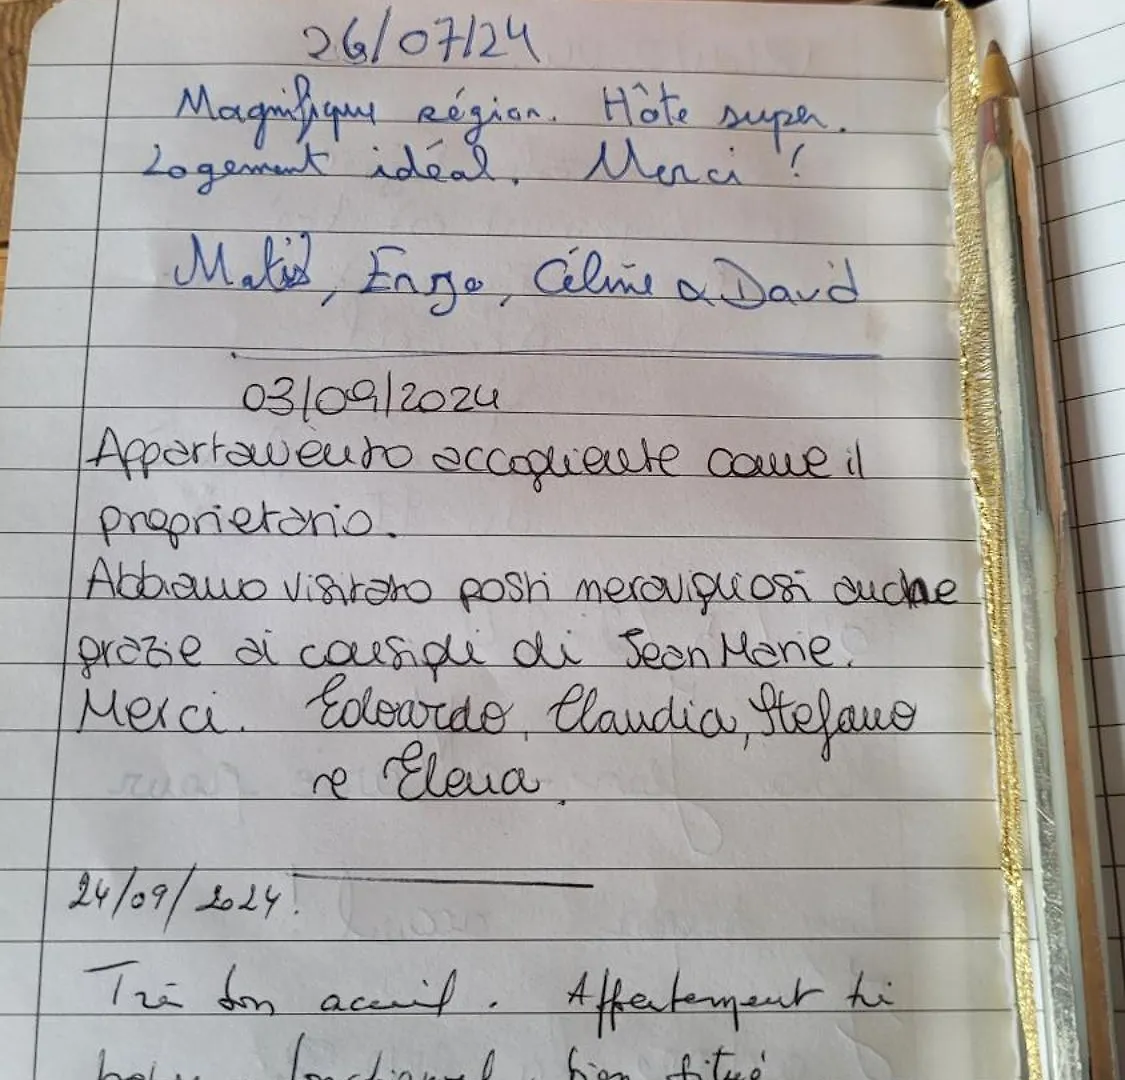 26/07/24
Magnifique région. Hôte super.
Logement idéal. Merci !
Enzo, Céline & David
03/09/2024
Appartamento accogliente come il
proprietario.
Abbiamo visitato posti meravigliosi anche
grazie ai consigli di Jean Marie.
Merci. Edoardo, Claudia, Stefano
e Elena.
24/09/2024.
Très bon accueil. Appartement
fonctionnel, bien situé